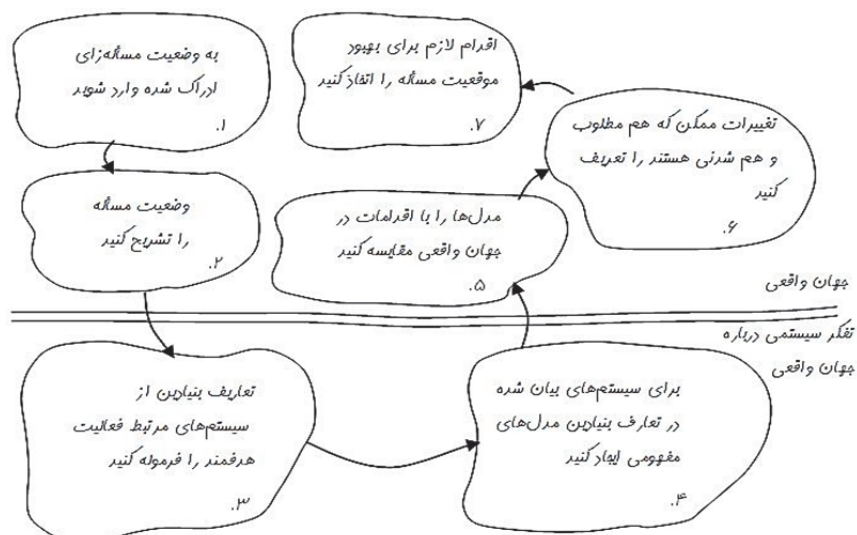 به وضعیت مسأله‌زای
ادراک شده وارد شوید
۱.
وضعیت مسأله
را تشریح کنید
۲.
تعاریف بنیادین از
سیستم‌های مرتبط فعالیت
هدفمند را فرموله کنید
۳.
برای سیستم‌های بیان شده
در تعارف بنیادین مدل‌های
مفهومی ایجاد کنید
۴.
مدل‌ها را با اقدامات در
جهان واقعی مقایسه کنید
۵.
تغییرات ممکن که هم مطلوب
و هم شدنی هستند را تعریف
کنید
۶.
اقدام لازم برای بهبود
موقعیت مسأله را اتخاذ کنید
۷.
جهان واقعی
تفکر سیستمی درباره
جهان واقعی